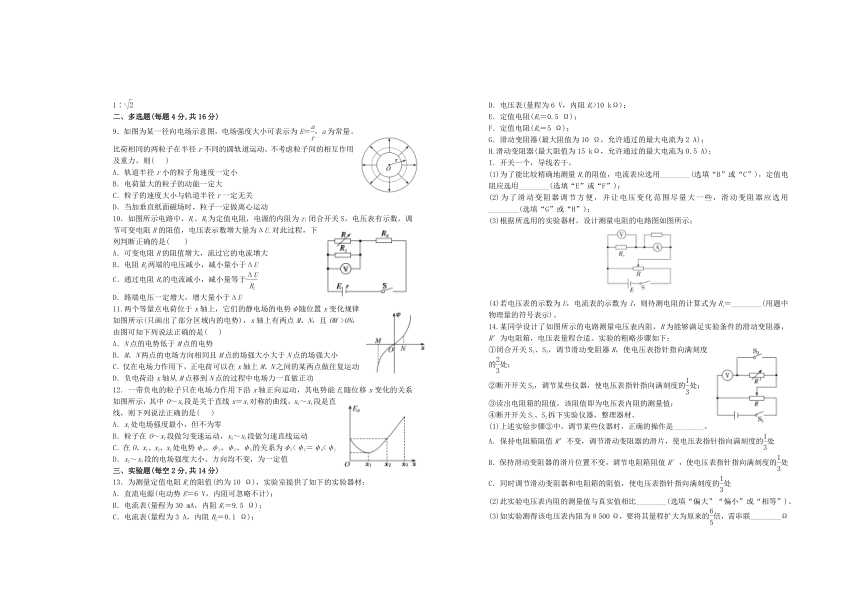 1∶√2
二、多选题(每题4分,共16分)
9．如图为某一径向电场示意图，电场强度大小可表示为E=a/r，a为常量。
比荷相同的两粒子在半径r不同的圆轨道运动。不考虑粒子间的相互作用
及重力，则(　　)
A．轨道半径r小的粒子角速度一定小
B．电荷量大的粒子的动能一定大
C．粒子的速度大小与轨道半径r一定无关
D．当加垂直纸面磁场时，粒子一定做离心运动
10．如图所示电路中，R₁、R₂为定值电阻，电源的内阻为r.闭合开关S，电压表有示数，调
节可变电阻R的阻值，电压表示数增大量为ΔU.对此过程，下
列判断正确的是(　　)
A．可变电阻R的阻值增大，流过它的电流增大
B．电阻R₂两端的电压减小，减小量小于ΔU
C．通过电阻R₂的电流减小，减小量等于ΔU/R₂
D．路端电压一定增大，增大量小于ΔU
11．两个等量点电荷位于x轴上，它们的静电场的电势φ随位置x变化规律
如图所示(只画出了部分区域内的电势)，x轴上有两点M、N，且OM>ON，
由图可知下列说法正确的是(　　)
A．N点的电势低于M点的电势
B．M、N两点的电场方向相同且M点的场强大小大于N点的场强小大
C．仅在电场力作用下，正电荷可以在x轴上M、N之间的某两点做往复运动
D．负电荷沿x轴从M点移到N点的过程中电场力一直做正功
12．一带负电的粒子只在电场力作用下沿x轴正向运动，其电势能Eₚ随位移x变化的关系
如图所示，其中O～x₂段是关于直线x=x₁对称的曲线，x₂～x₃段是直
线，则下列说法正确的是(　　)
A．x₁处电场强度最小，但不为零
B．粒子在O～x₂段做匀变速运动，x₂～x₃段做匀速直线运动
D．x₂～x₃段的电场强度大小、方向均不变，为一定值
三、实验题(每空2分,共14分)
13．为测量定值电阻Rₓ的阻值(约为10 Ω)，实验室提供了如下的实验器材:
A．直流电源(电动势E=6 V，内阻可忽略不计);
B．电流表(量程为30 mA，内阻R₁=9.5 Ω);
C．电流表(量程为3 A，内阻R₂=0.1 Ω);
D．电压表(量程为6 V，内阻R₃>10 kΩ);
E．定值电阻(R₄=0.5 Ω);
F．定值电阻(R₅=5 Ω);
G．滑动变阻器(最大阻值为10 Ω，允许通过的最大电流为2 A);
H.滑动变阻器(最大阻值为15 kΩ，允许通过的最大电流为0.5 A);
I．开关一个，导线若干。
(1)为了能比较精确地测量Rₓ的阻值，电流表应选用________(选填“B”或“C”)，定值电
阻应选用________(选填“E”或“F”);
(2)为了滑动变阻器调节方便，并让电压变化范围尽量大一些，滑动变阻器应选用
________(选填“G”或“H”);
(3)根据所选用的实验器材，设计测量电阻的电路图如图所示:
(4)若电压表的示数为U，电流表的示数为I，则待测电阻的计算式为Rₓ=________(用题中
物理量的符号表示)。
14．某同学设计了如图所示的电路测量电压表内阻，R为能够满足实验条件的滑动变阻器，
R′为电阻箱，电压表量程合适。实验的粗略步骤如下:
①闭合开关S₁、S₂，调节滑动变阻器R，使电压表指针指向满刻度
的2/3处;
②断开开关S₂，调节某些仪器，使电压表指针指向满刻度的1/3处;
③读出电阻箱的阻值，该阻值即为电压表内阻的测量值;
④断开开关S₁、S₂拆下实验仪器，整理器材。
(1)上述实验步骤②中，调节某些仪器时，正确的操作是________。
A．保持电阻箱阻值R′不变，调节滑动变阻器的滑片，使电压表指针指向满刻度的1/3处
B．保持滑动变阻器的滑片位置不变，调节电阻箱阻值R′，使电压表指针指向满刻度的1/3处
C．同时调节滑动变阻器和电阻箱的阻值，使电压表指针指向满刻度的1/3处
(2)此实验电压表内阻的测量值与真实值相比________(选填“偏大”“偏小”或“相等”)。
(3)如实验测得该电压表内阻为8 500 Ω，要将其量程扩大为原来的6/5倍，需串联________Ω